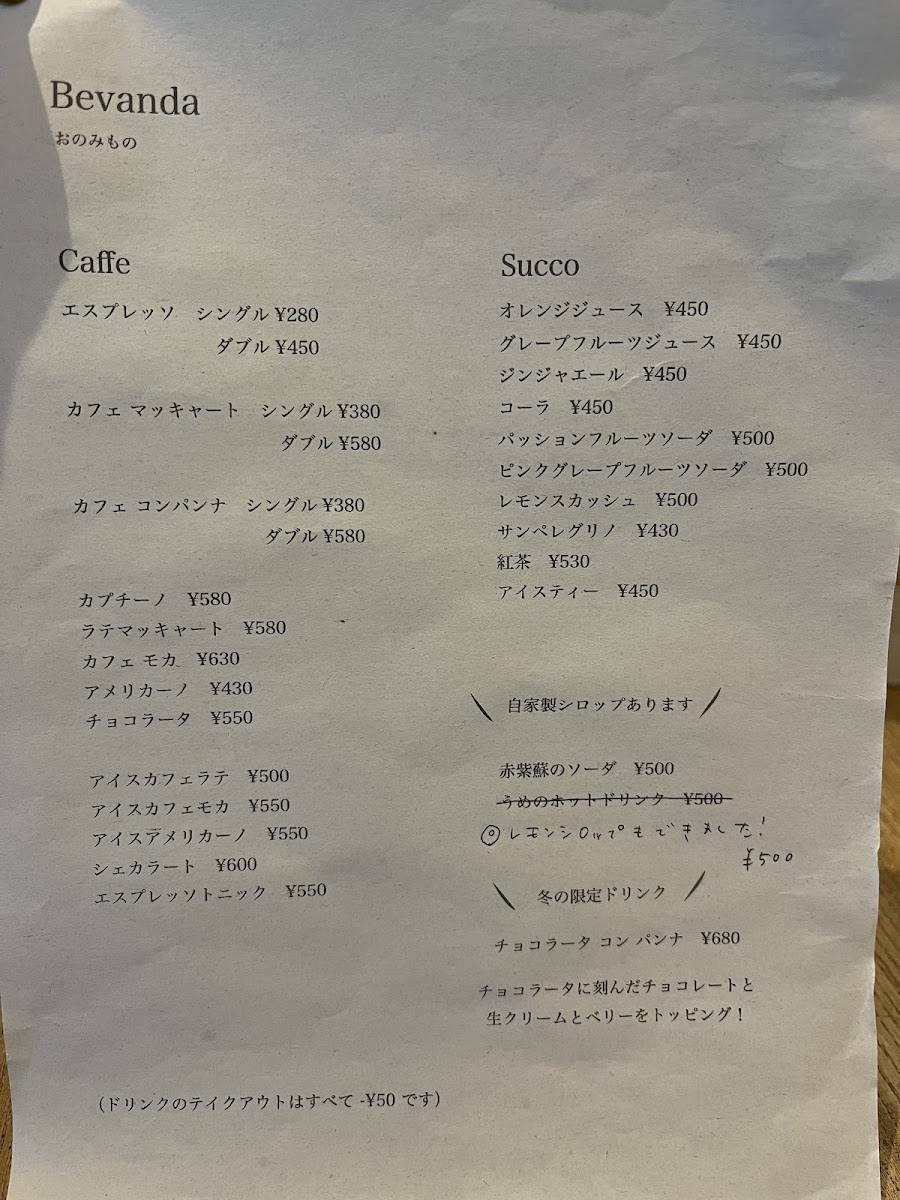 Bevanda
おのみもの
Caffe
エスプレッソ シングル ¥280
ダブル ¥450
カフェ マッキャート シングル ¥380
ダブル ¥580
カフェ コンパンナ シングル ¥380
ダブル ¥580
カプチーノ ¥580
ラテマッキャート ¥580
カフェ モカ ¥630
アメリカーノ ¥430
チョコラータ ¥550
アイスカフェラテ ¥500
アイスカフェモカ ¥550
アイスアメリカーノ ¥550
シェカラート ¥600
エスプレッソトニック ¥550
Succo
オレンジジュース ¥450
グレープフルーツジュース ¥450
ジンジャエール ¥450
コーラ ¥450
パッションフルーツソーダ ¥500
ピンクグレープフルーツソーダ ¥500
レモンスカッシュ ¥500
サンペレグリノ ¥430
紅茶 ¥530
アイスティー ¥450
\ 自家製シロップあります /
赤紫蘇のソーダ ¥500
うめのホットドリンク ¥500
◎レモンシロップもできました!
¥500
\ 冬の限定ドリンク /
チョコラータ コン パンナ ¥680
チョコラータに刻んだチョコレートと
生クリームとベリーをトッピング!
(ドリンクのテイクアウトはすべて -¥50 です)